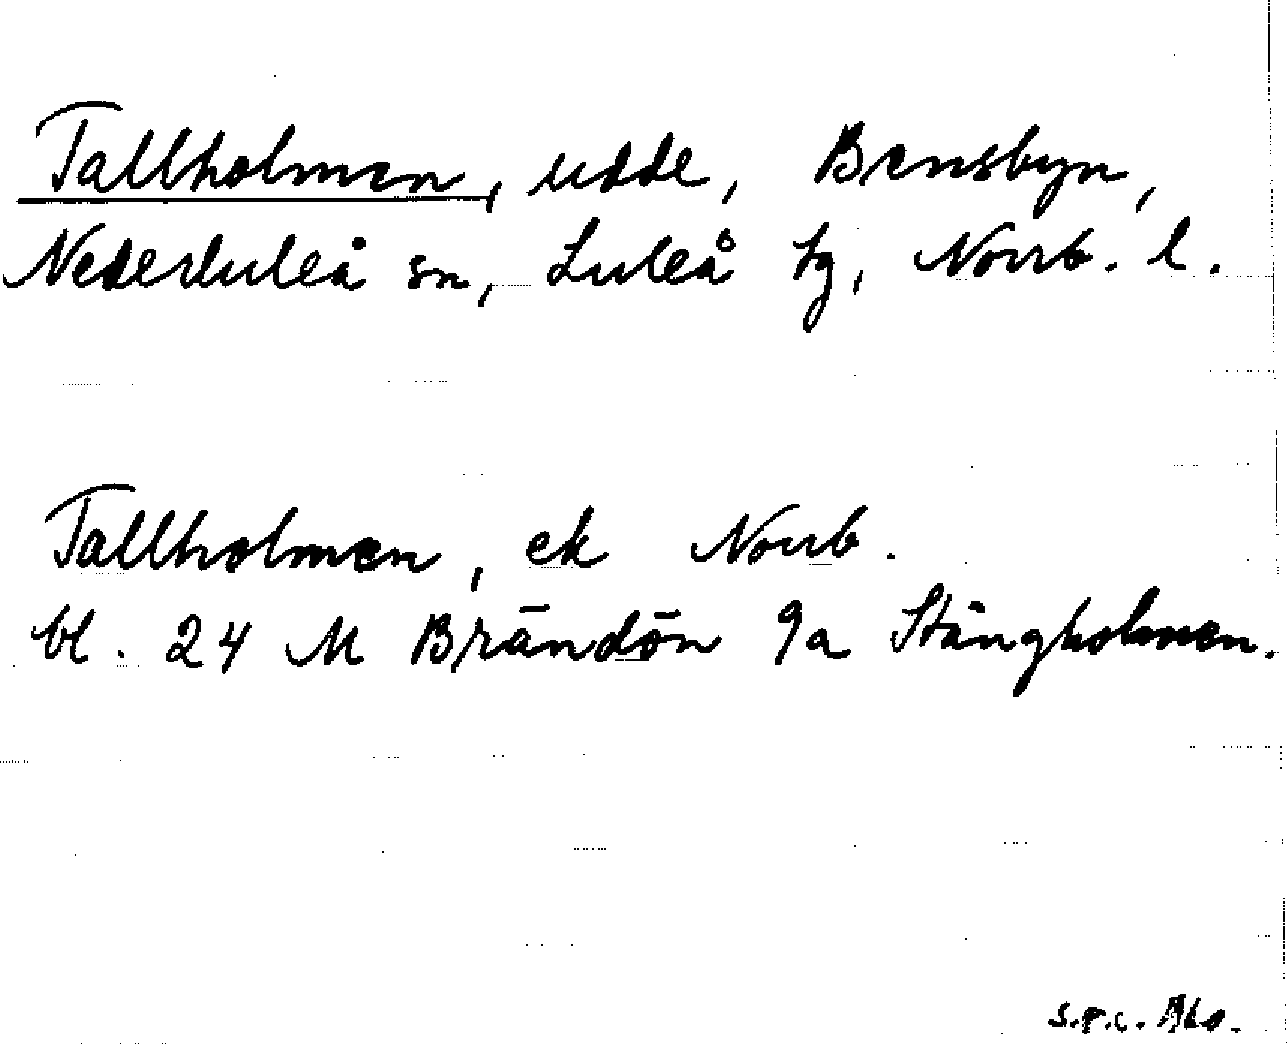 Tallholmen, udde, Bensbyn,
Nederluleå sn, Luleå tg, Norrb. l.
Tallholmen, ek Norrb.
bl. 24 M Brändön 9a Stångholmen.
s.p.c.